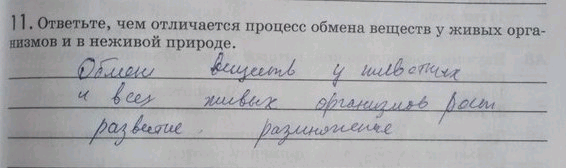 11. Ответьте, чем отличается процесс обмена веществ у живых орга-
низмов и в неживой природе.
Обмен веществ у животных
и всех живых организмов рост
развитие размножение